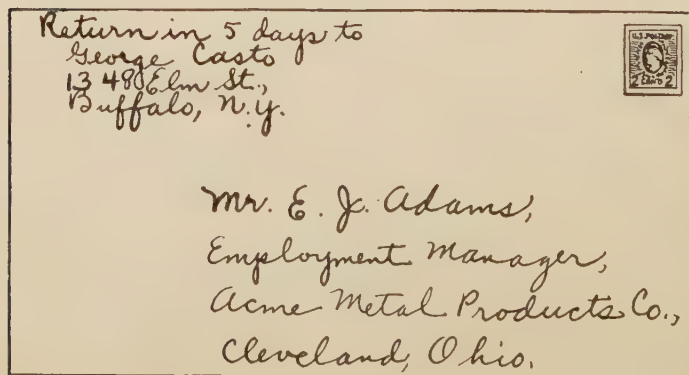 Return in 5 days to
George Casto
1348 Elm St.,
Buffalo, N.Y.
U.S. POSTAGE
2 2
Mr. E. J. Adams,
Employment Manager,
Acme Metal Products Co.,
Cleveland, Ohio.